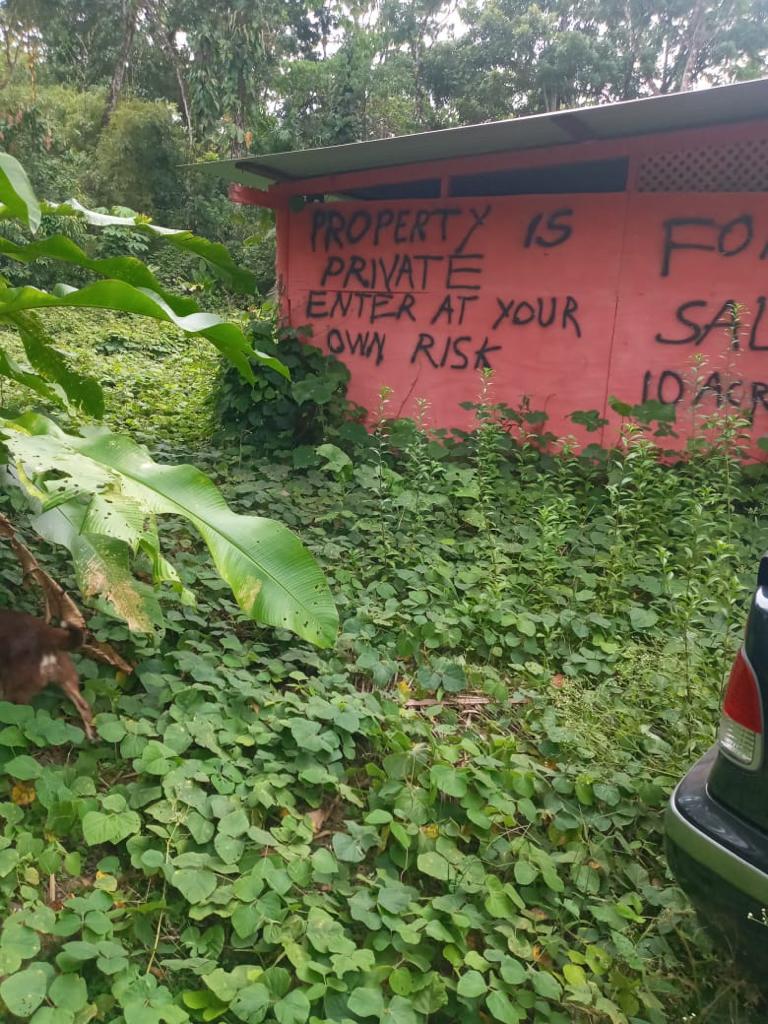 PROPERTY IS
PRIVATE
ENTER AT YOUR
OWN RISK
FO
SAL
10 ACR